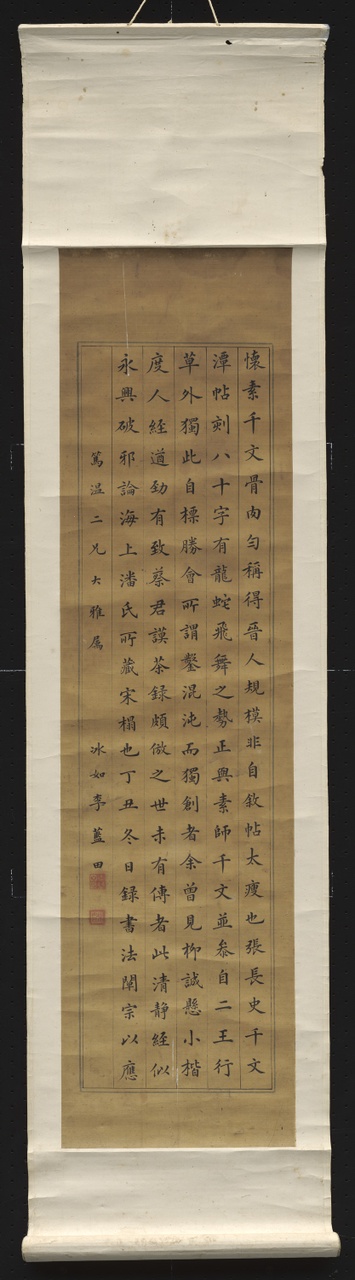 懷素千文骨肉勻稱得晉人規模非自敘帖太瘦也張長史千文
潭帖刻八十字有龍蛇飛舞之勢正與素師千文並叅自二王行
草外獨此自標勝會所謂鑿混沌而獨創者余曾見柳誠懸小楷
度人經遒勁有致蔡君謨茶録頗倣之世未有傳者此清静經似
永興破邪論海上潘氏所藏宋榻也丁丑冬日録書法闡宗以應
篤温二兄大雅属
冰如李藍田